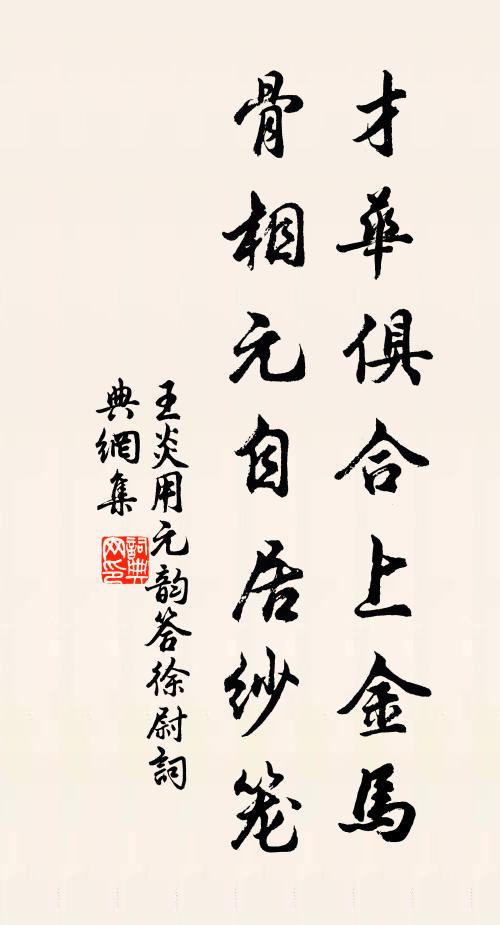 才華俱合上金馬
骨相元自居紗笼
王炎用元韵答徐尉詞
典網集
詞典網印